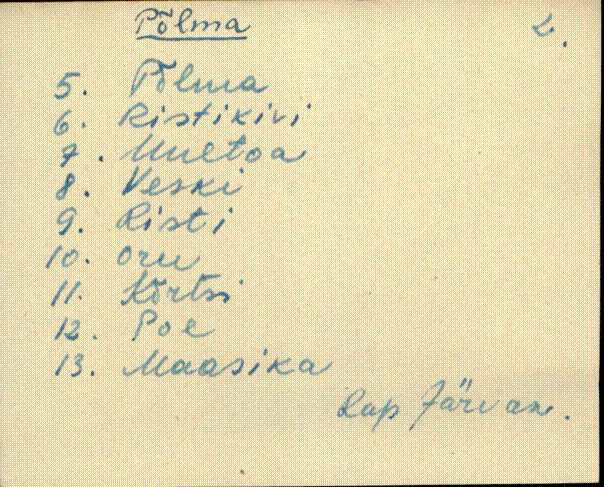 Põlma 2.
5. Põlma
6. Ristikivi
7. Uuetoa
8. Veski
9. Risti
10. Oru
11. Kõrtsi
12. Poe
13. Maasika